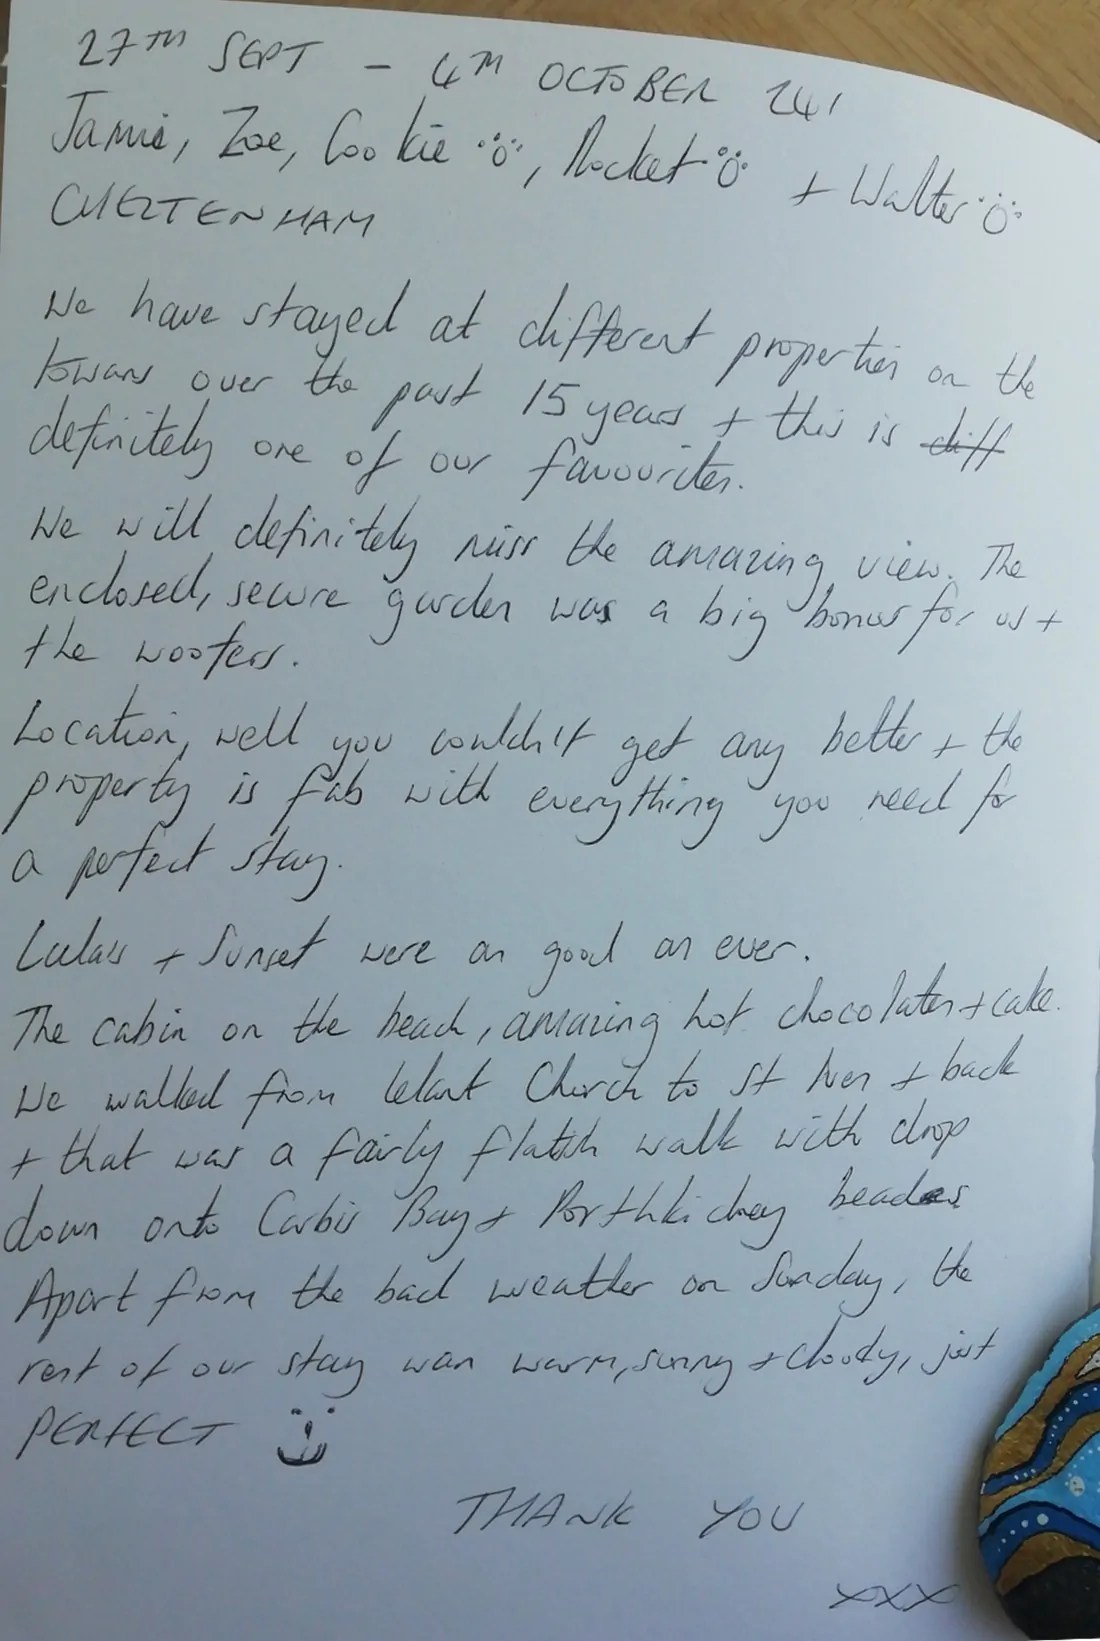 27TH SEPT - 4TH OCTOBER 24'
Jamie, Zoe, Cookie, Rocket + Walter
CHELTENHAM
We have stayed at different properties on the
towans over the past 15 years + this is diff
definitely one of our favourites.
We will definitely miss the amazing view. The
enclosed, secure garden was a big bonus for us +
the woofers.
Location, well you couldn't get any better + the
property is fab with everything you need for
a perfect stay.
Lulas + Sunset were as good as ever.
The cabin on the beach, amazing hot chocolates + cake.
We walked from Lelant Church to St Ives + back
+ that was a fairly flatish walk with drop
down onto Carbis Bay + Porthkidney beaches
Apart from the bad weather on Sunday, the
rest of our stay was warm, sunny + cloudy, just
PERFECT
THANK YOU
xxx